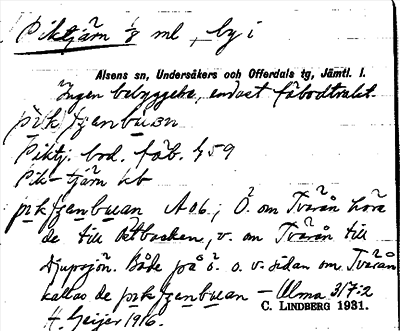 Piktjärn ⅛ ml, by i
Alsens sn, Undersåkers och Offerdals tg, Jämtl. l.
Ingen bebyggelse, endast fäbodtrakt.
Piktj. bod. fäb. 459
Pik-tjärn kb
A ob.; Ö. om Tvärån höra
de till Östbacken, v. om Tvärån till
Djupsjön. Både på ö. o. v. sidan om Tvärån
kallas de — Alma 3/7:2
H. Geijer 1916.
C. LINDBERG 1931.